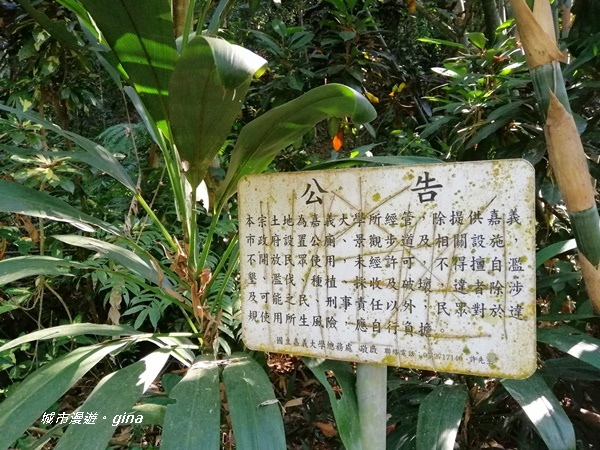 公告
本宗土地為嘉義大學所經管，除提供嘉義
市政府設置公廁、景觀步道及相關設施，
不開放民眾使用，未經許可，不得擅自濫
墾濫伐、種植、採收及破壞，違者除涉
及可能之民、刑事責任以外，民眾對於違
規使用所生風險，應自行負擔。
國立嘉義大學總務處 敬啟 聯絡電話
城市漫遊。gina